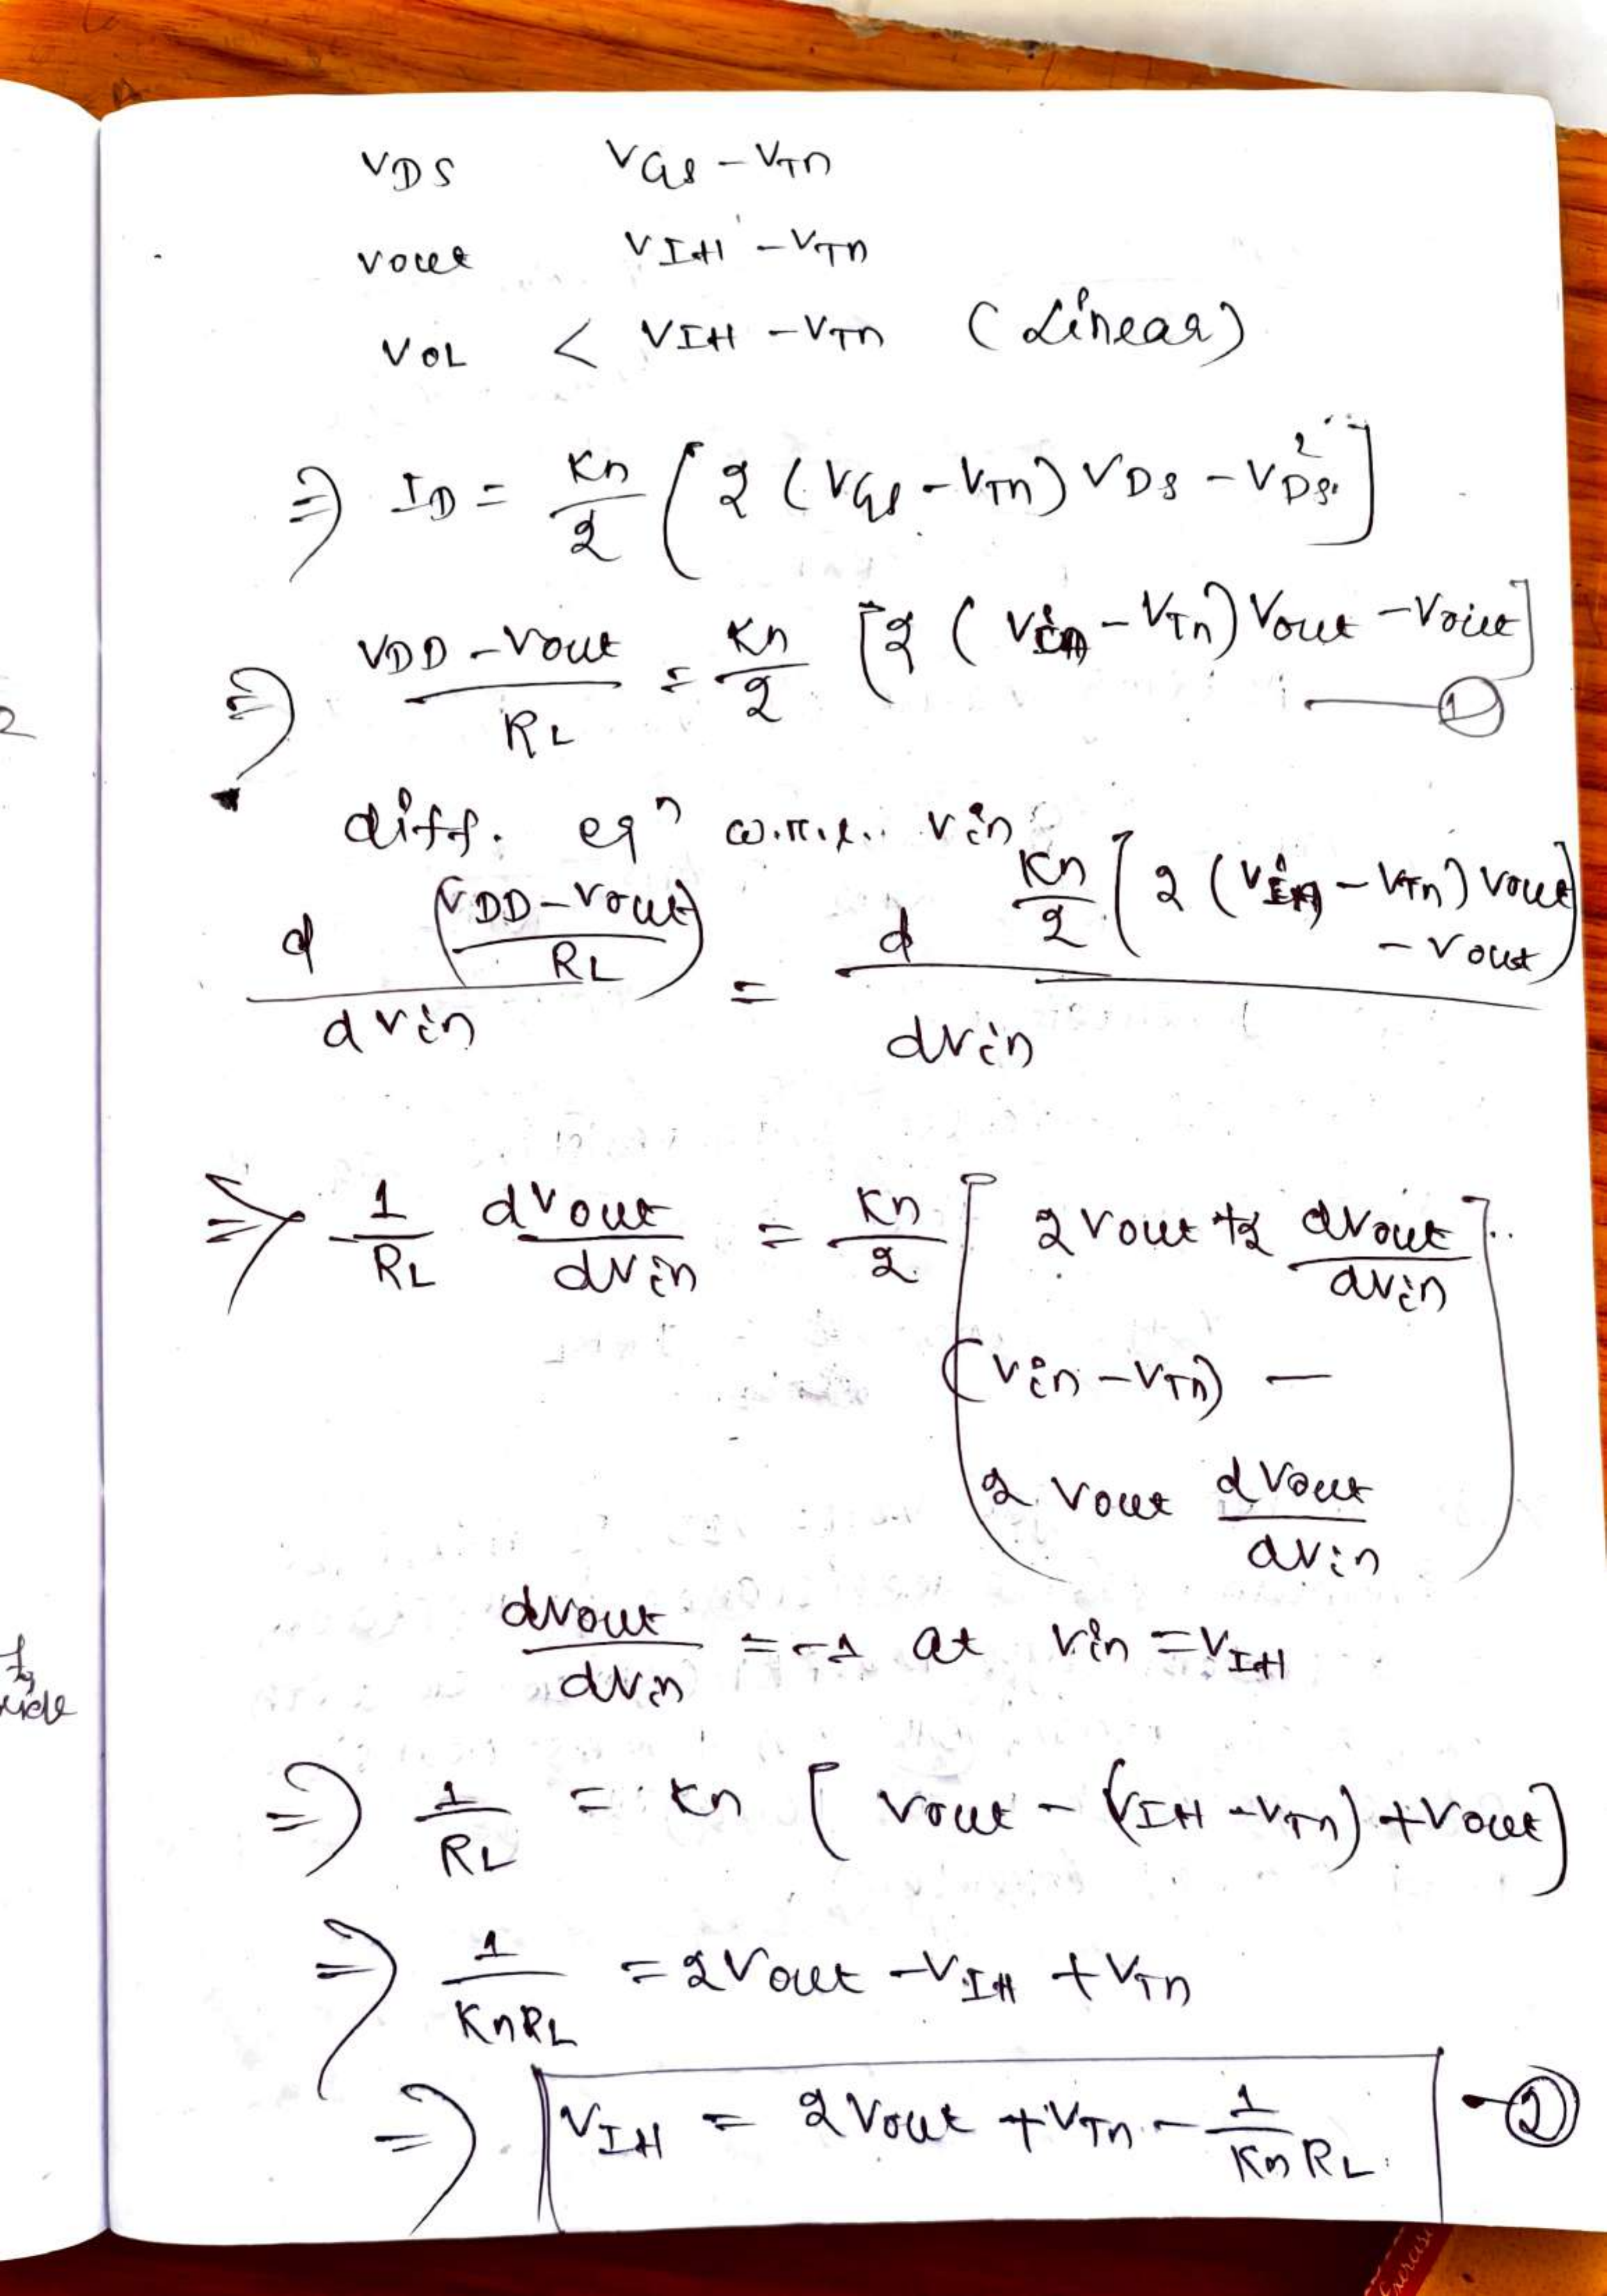 VDS VGS - VTn
Vout VIH - VTn
VOL < VIH - VTn (Linear)
⇒ ID = Kn/2 [2 (VGS - VTn) VDS - VDS²]
⇒ (VDD - Vout)/RL = Kn/2 [2 (Vin - VTn) Vout - Vout] — ①
diff. eqⁿ w.r.t. Vin
d((VDD - Vout)/RL)/dVin = d Kn/2 [2 (Vin - VTn) Vout - Vout]/dVin
⇒ -1/RL dVout/dVin = Kn/2 [2 Vout + 2 dVout/dVin
(Vin - VTn) -
2 Vout dVout/dVin]
dVout/dVin = -1 at Vin = VIH
⇒ 1/RL = Kn [Vout - (VIH - VTn) + Vout]
⇒ 1/KnRL = 2Vout - VIH + VTn
⇒ VIH = 2Vout + VTn - 1/KnRL - ②
Exercise